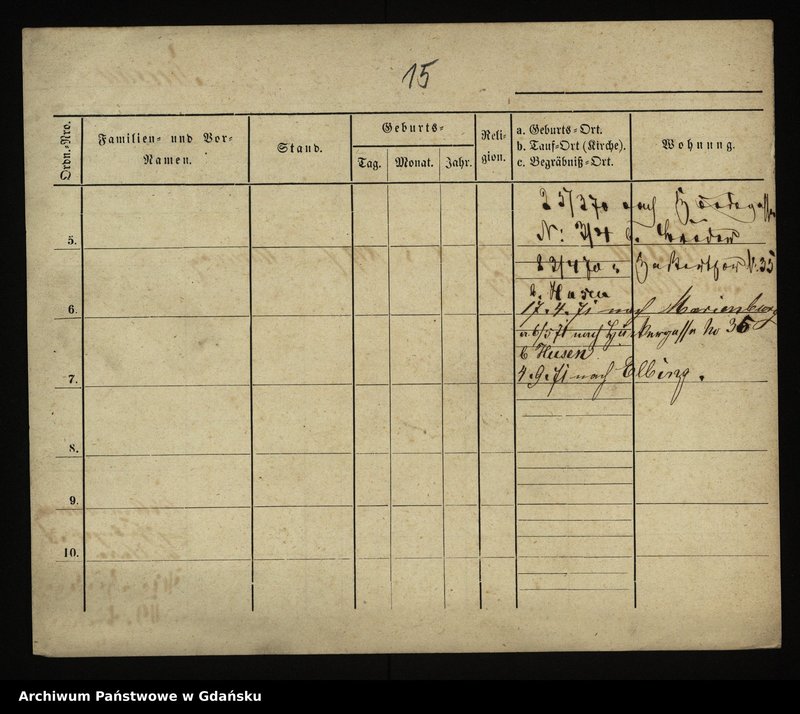 15
Ordn.-Nro.
Familien- und Vor-
Namen.
Stand.
Geburts-
Tag.
Monat.
Jahr.
Reli-
gion.
a. Geburts-Ort.
b. Tauf-Ort (Kirche).
c. Begräbniß-Ort.
Wohnung.
2 5/3 70 nach
N: 3/4 b.
5.
2 3/4 70
b. Husen
6.
17.4.71 nach Marienburg
a 6/5 71 nach Häkergasse No 36
b Husen
7.
4.9.71 nach Elbing.
8.
9.
10.
Archiwum Państwowe w Gdańsku